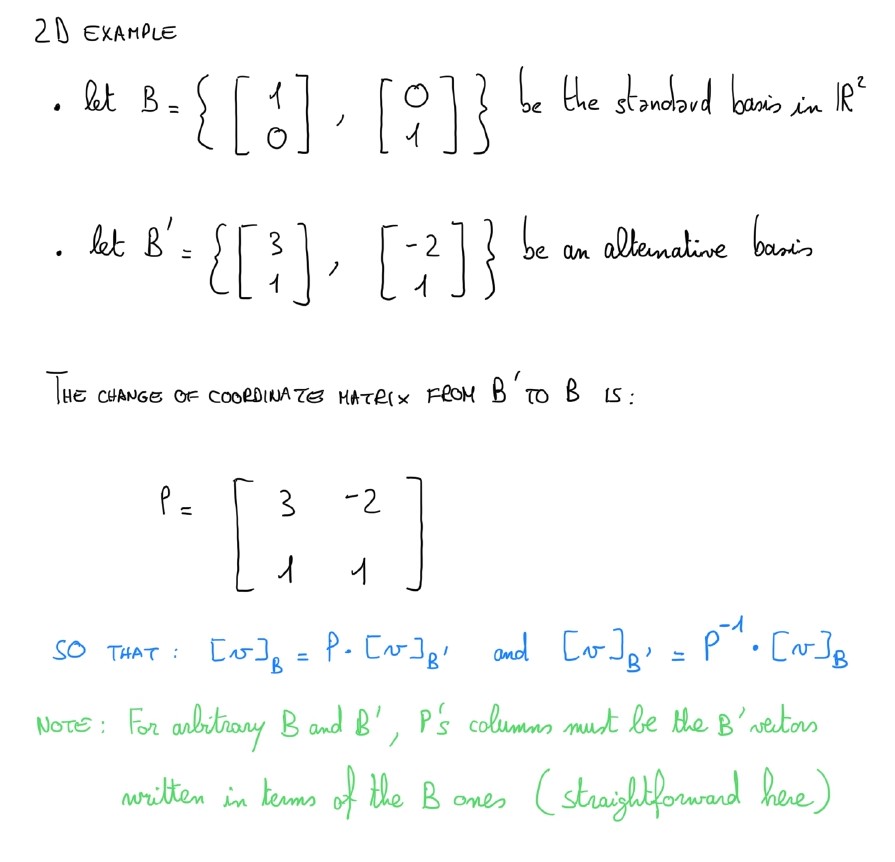 2D EXAMPLE
• let B = { [ 1 0 ] , [ 0 1 ] } be the standard basis in ℝ²
• let B' = { [ 3 1 ] , [ -2 1 ] } be an alternative basis
THE CHANGE OF COORDINATE MATRIX FROM B' TO B IS:
P = [ 3 -2
1 1 ]
SO THAT : [v]_B = P · [v]_B' and [v]_B' = P⁻¹ · [v]_B
NOTE : For arbitrary B and B', P's columns must be the B' vectors
written in terms of the B ones (straightforward here)